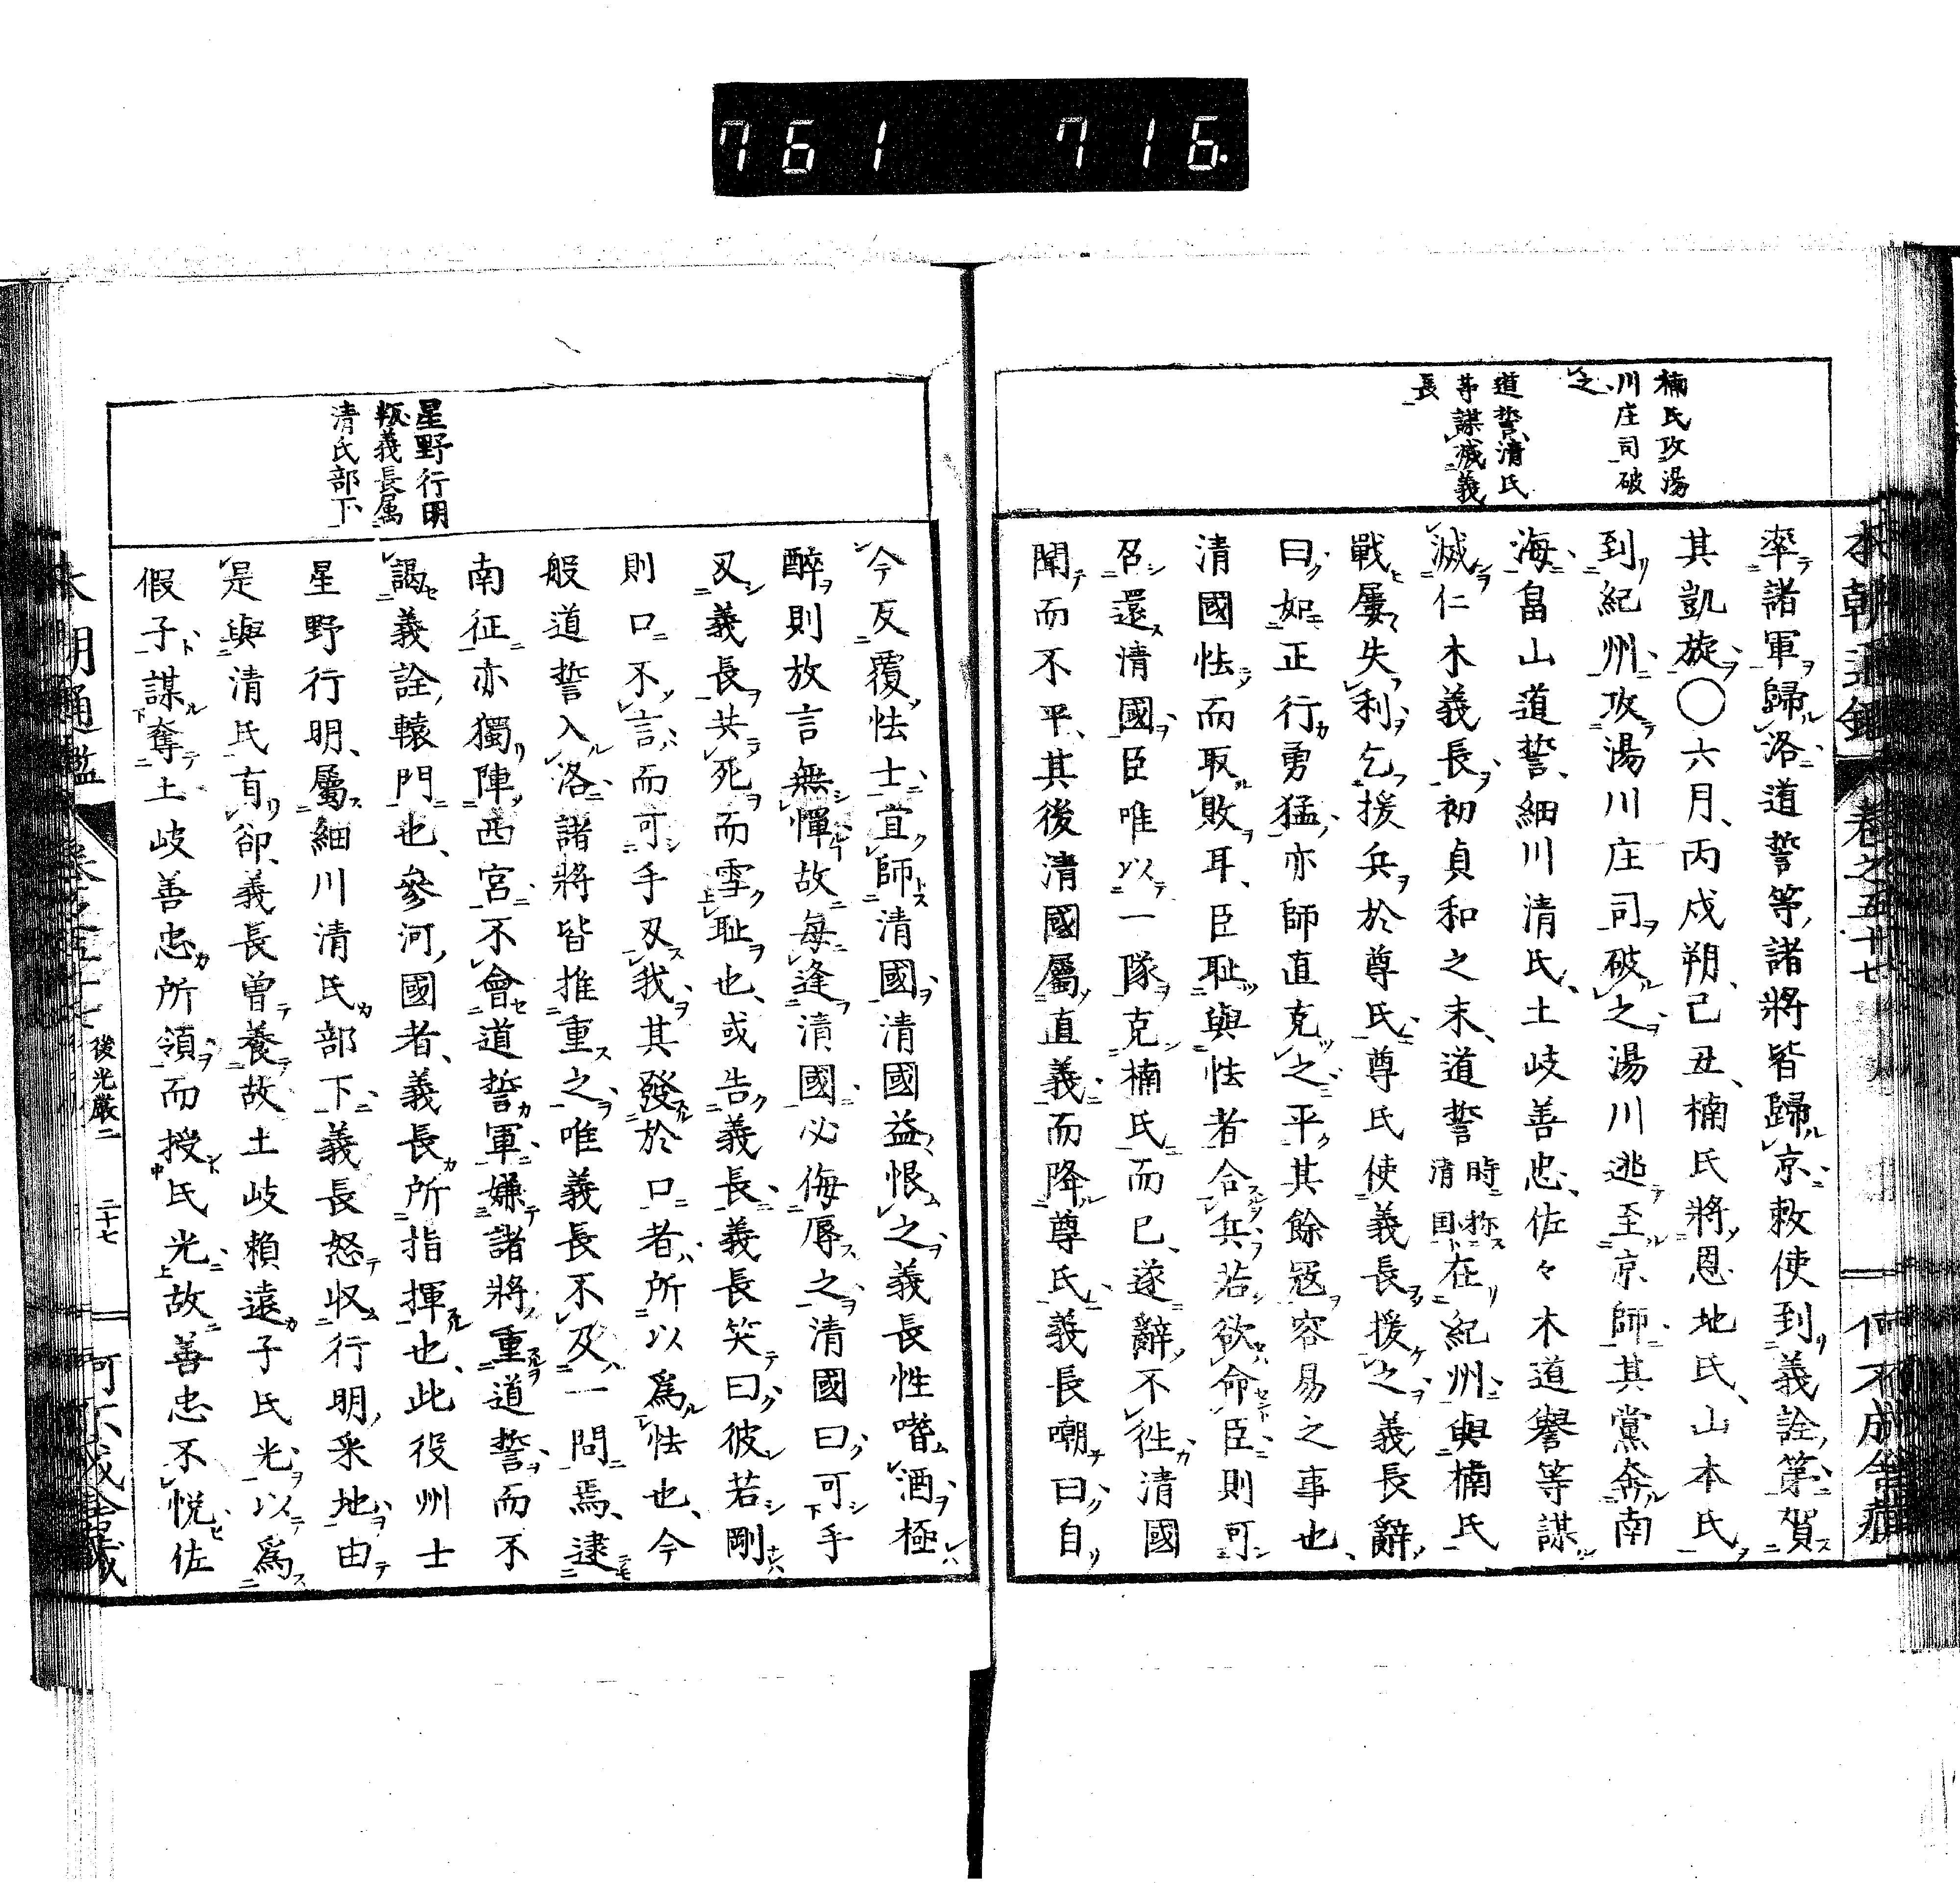 761 716
本朝通鑑 卷之五十七
何不成舍藏
楠氏攻湯
川庄司破
之
道誓清氏
等謀滅義
長
率諸軍歸洛道誓等諸將皆歸京敕使到義詮第賀
其凱旋〇六月丙戌朔己丑楠氏將恩地氏山本氏
到紀州攻湯川庄司破之湯川逃至京師其黨奔南
海畠山道誓細川清氏土岐善忠佐々木道譽等謀
滅仁木義長初貞和之末道誓時称清国在紀州與楠氏
戰屢失利乞援兵於尊氏尊氏使義長援之義長辭
曰如正行勇猛亦師直克之平其餘冦容易之事也
清國怯而取敗耳臣耻與怯者合兵若欲命臣則可
召還清國臣唯以一隊克楠氏而已遂辭不徃清國
聞而不平其後清國屬直義而降尊氏義長嘲曰自
星野行明
叛義長属
清氏部下
今反覆怯士宜師清國清國益恨之義長性嗜酒極
醉則放言無憚故每逢清國必侮辱之清國曰可手
刄義長共死而雪耻也或告義長義長笑曰彼若剛
則口不言而可手刄我其發於口者所以爲怯也今
般道誓入洛諸將皆推重之唯義長不及一問焉逮
南征亦獨陣西宮不會道誓軍嫌諸將重道誓而不
謁義詮轅門也參河國者義長所指揮也此役州士
星野行明屬細川清氏部下義長怒収行明釆地由
是與清氏有卻義長曽養故土岐賴遠子氏光以爲
假子謀奪土岐善忠所領而授氏光故善忠不悦佐
本朝通鑑 卷之五十七 後光厳二 二十七 何不成舍藏